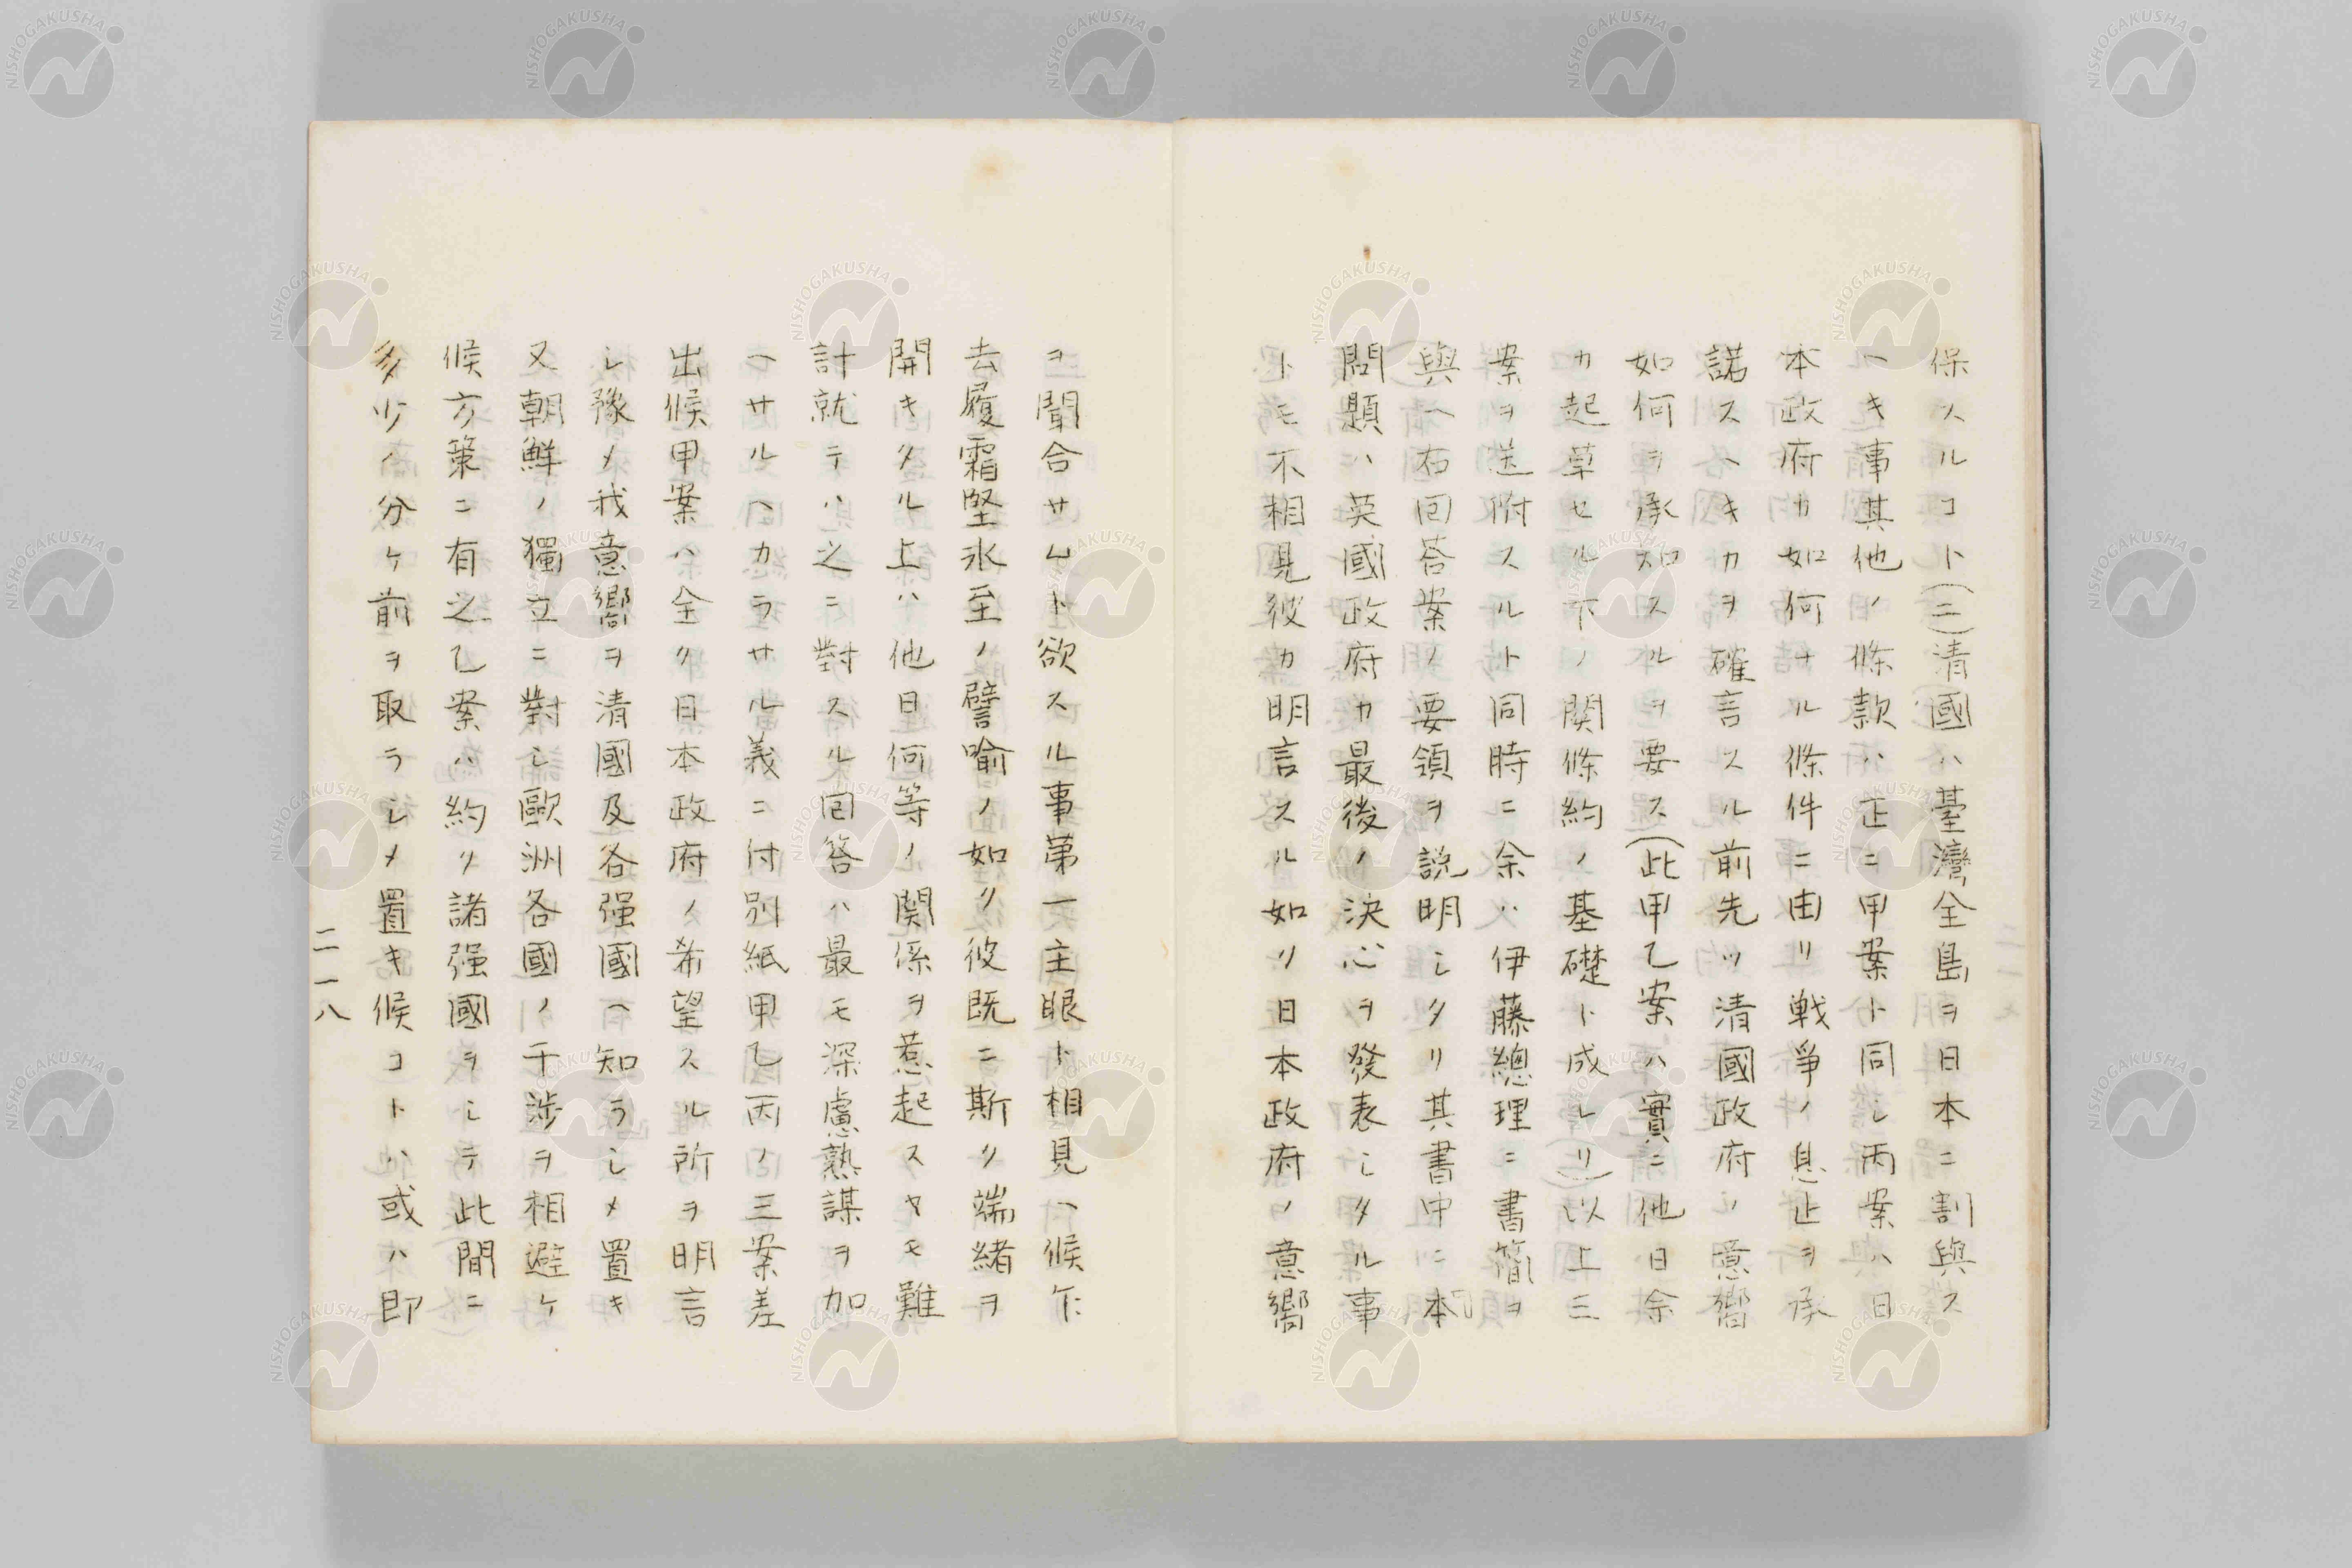 保スルコト(二)清國ハ臺灣全島ヲ日本ニ割與ス
ヘキ事其他ノ條款ハ正ニ甲案ト同シ丙案ハ日
本政府カ如何ナル條件ニ由リ戦爭ノ息止ヲ承
諾スヘキカヲ確言スル前先ツ清國政府ノ意嚮
如何ヲ承知スルヲ要ス(此甲乙案ハ實ニ他日余
カ起草セル下ノ関條約ノ基礎ト成レリ)以上三
案ヲ送附スルト同時ニ余ハ伊藤總理ニ書簡ヲ
與ヘ右回答案ノ要領ヲ説明シタリ其書中ニ本
問題ハ英國政府カ最後ノ決心ヲ發表シタル事
トモ不相見彼カ明言スル如リ日本政府ノ意嚮
ヲ聞合サムト欲スル事第一主眼ト相見ヘ候乍
去履霜堅氷至ノ譬喻ノ如リ彼既ニ斯ク端緒ヲ
開キタル上ハ他日何等ノ関係ヲ惹起スヤモ難
計就テハ之ニ對スル回答ハ最モ深慮熟謀ヲ加
ヘサルヘカラサル義ニ付別紙甲乙丙ノ三案差
出候甲案ハ全ク日本政府ノ希望スル所ヲ明言
シ豫メ我意嚮ヲ清國及各强國ヘ知ラシメ置キ
又朝鮮ノ獨立ニ對シ歐洲各國ノ干涉ヲ相避ケ
候方策ニ有之乙案ハ約リ諸强國ヲシテ此間ニ
多少ノ分ケ前ヲ取ラシメ置キ候コトハ或ハ即
二一八
NISHOGAKUSHA